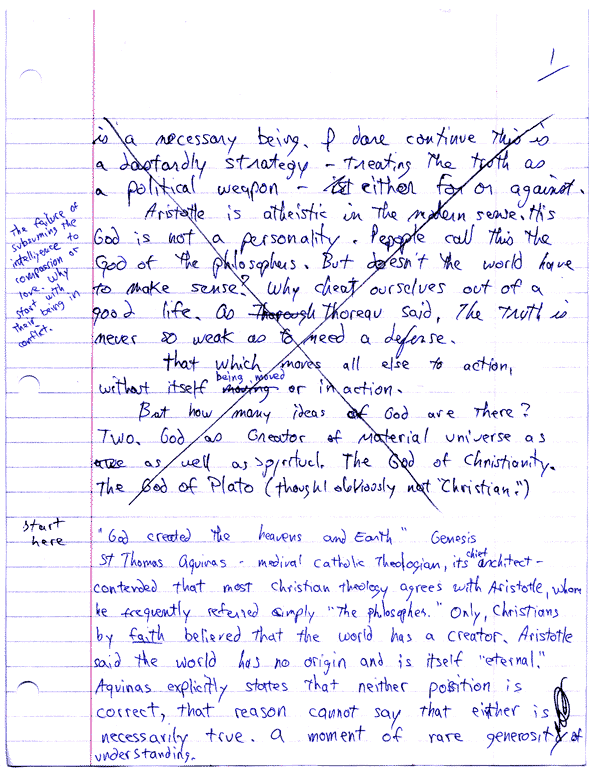 1
is a necessary being. I dare continue this is
a dastardly strategy – treating the truth as
a political weapon – either for or against.
Aristotle is atheistic in the modern sense. His
God is not a personality. People call this the
God of the philosophers. But doesn't the world have
to make sense? Why cheat ourselves out of a
good life. As Thorough Thoreau said, The truth is
never so weak as to need a defense.
That which moves all else to action,
being moved
without itself moving or in action.
But how many ideas of God are there?
Two. God as Creator of material universe as
as well as spiritual. The God of Christianity.
The God of Plato (though obviously not "Christian.")
The failure of
subsuming the
intelligence to
compassion or
love. Why
start with
their being in
conflict.
start
here
"God created the heavens and Earth" Genesis
St Thomas Aquinas – medival Catholic Theologian, its chief architect –
contended that most Christian theology agrees with Aristotle, whom
he frequently referred simply "The philosopher." Only, Christians
by faith believed that the world has a creator. Aristotle
said the world has no origin and is itself "eternal."
Aquinas explicitly states that neither position is
correct, that reason cannot say that either is
necessarily true. A moment of rare generosity of
understanding.